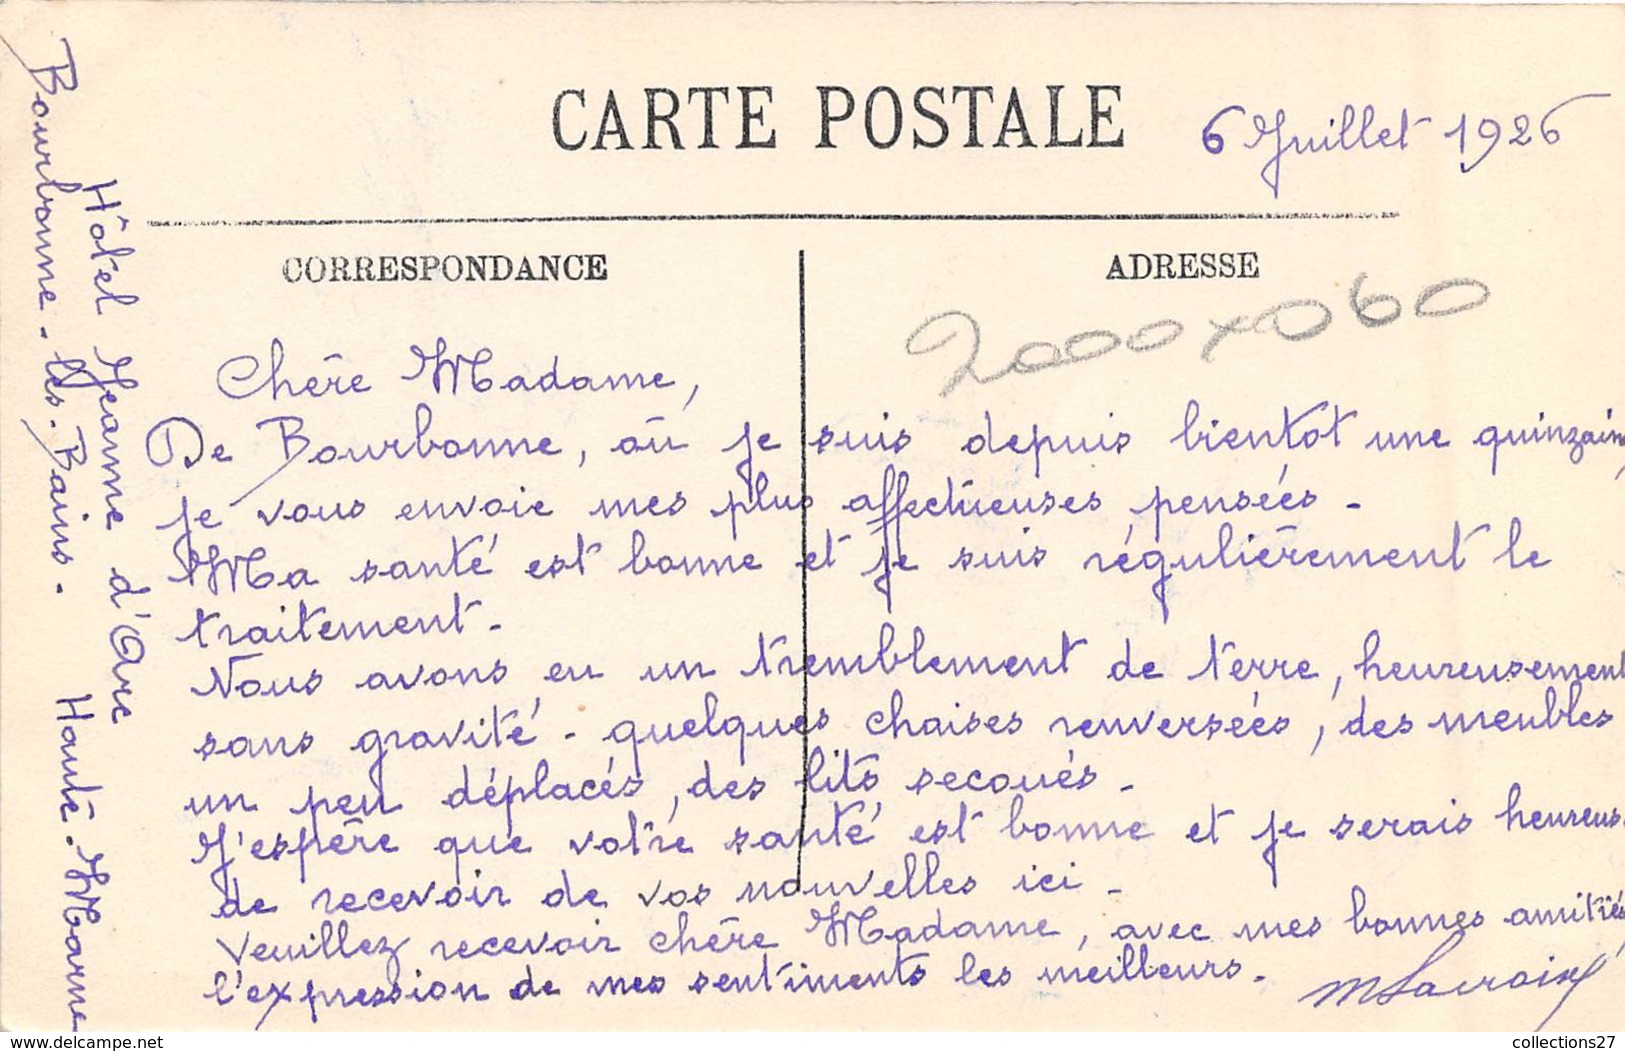 CARTE POSTALE
6 Juillet 1926
CORRESPONDANCE
ADRESSE
2000 x 060
Bourbonne-les-Bains.
Hôtel Jeanne d'Arc
Haute-Marne
Chère Madame,
De Bourbonne, où je suis depuis bientot une quinzain
je vous envoie mes plus affectueuses pensées -
Ma santé est bonne et je suis régulièrement le
traitement -
Nous avons eu un tremblement de terre, heureusement
sans gravité - quelques chaises renversées, des meubles
un peu déplacés, des lits secoués -
J'espère que votre santé est bonne et je serais heureus
de recevoir de vos nouvelles ici -
Veuillez recevoir chère Madame, avec mes bonnes amitiés
l'expression de mes sentiments les meilleurs -
delcampe.net
collections27